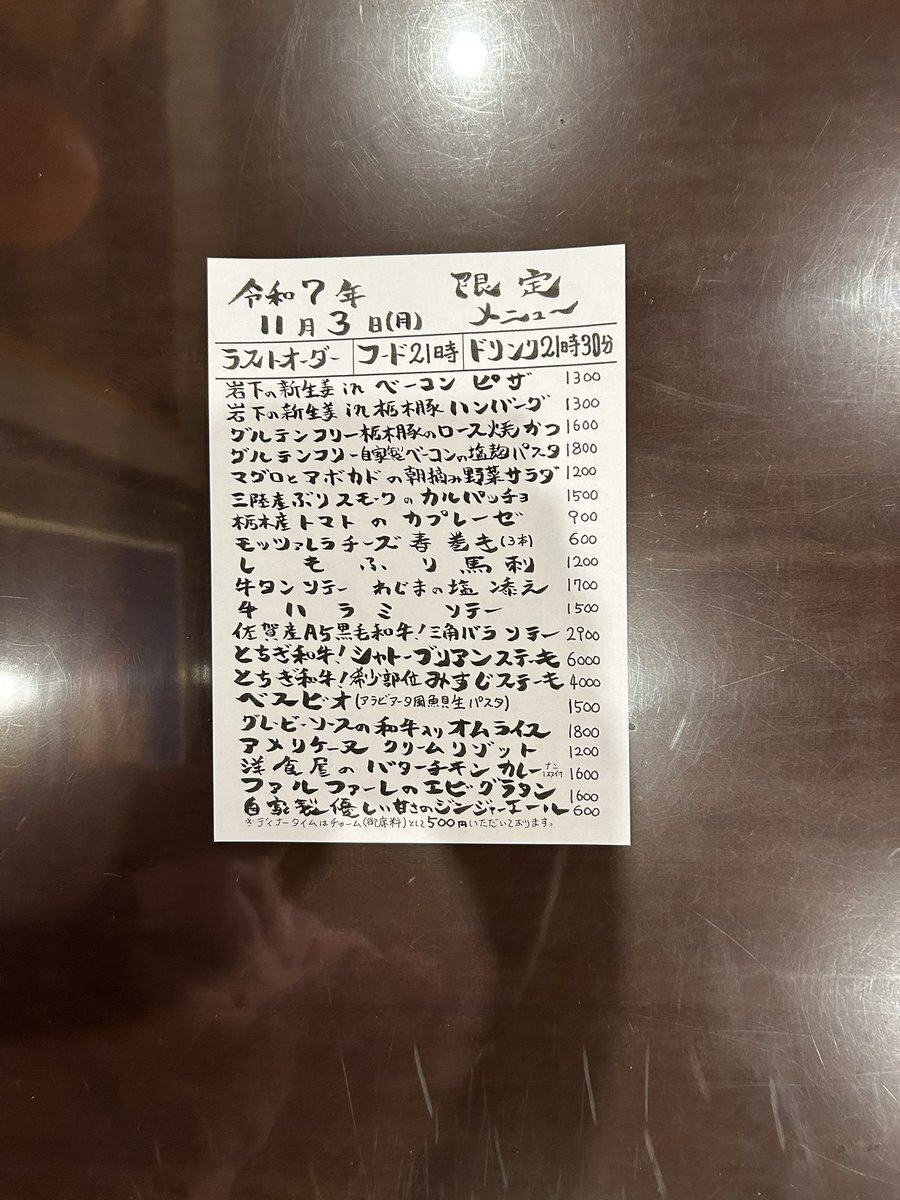 令和7年 限定
11月3日(月) メニュー
ラストオーダー フード21時 ドリンク21時30分
岩下の新生姜in ベーコン ピザ 1300
岩下の新生姜in栃木豚ハンバーグ 1300
グルテンフリー栃木豚のロース焼かつ 1600
グルテンフリー自家製ベーコンの塩麹パスタ 1800
マグロとアボカドの朝摘み野菜サラダ 1200
三陸産ぶりスモークのカルパッチョ 1500
栃木産トマトのカプレーゼ 900
モッツァレラチーズ春巻き(3本) 600
しもふり馬刺 1200
牛タンソテー わじまの塩添え 1700
牛ハラミソテー 1500
佐賀産A5黒毛和牛!三角バラソテー 2900
とちぎ和牛!シャトーブリアンステーキ 6000
とちぎ和牛!希少部位みすじステーキ 4000
ベスビオ(アラビアータ風魚貝生パスタ) 1500
グレービーソースの和牛入りオムライス 1800
アメリケーヌ クリームリゾット 1200
洋食屋のバターチキンカレー 1600
ファルファーレのエビグラタン 1600
自家製優しい甘さのジンジャーエール 600
※ディナータイムはチャーム(御席料)として500円いただいております。